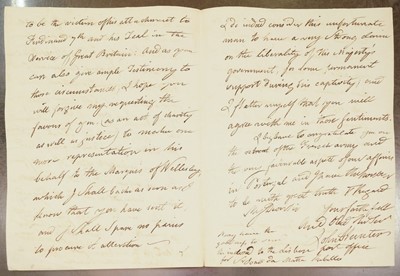 to be the victim of his attachment to
Ferdinand 7th and his Zeal in the
Service of Great Britain: And as you
can also give ample Testimony to
those circumstances, I hope you
will forgive my requesting the
favour of you (as an act of charity
as well as justice) to make one
more representation in his
behalf to the Marquis of Wellesley,
which I shall back as soon as I
know that you have sent it
and I shall Spare no pains
to procure it attention
I do indeed consider this unfortunate
man to have a very strong claim
on the liberality of His Majesty's
government, for some permanent
support during his captivity; and
I flatter myself that you will
agree with me in those sentiments.
I beg leave to congratulate you on
the retreat of the French army and
the very favourable aspect of our affairs
in Portugal and Spain
to be with great truth & Regard
My
Your faithful
and Obed
John Hunter